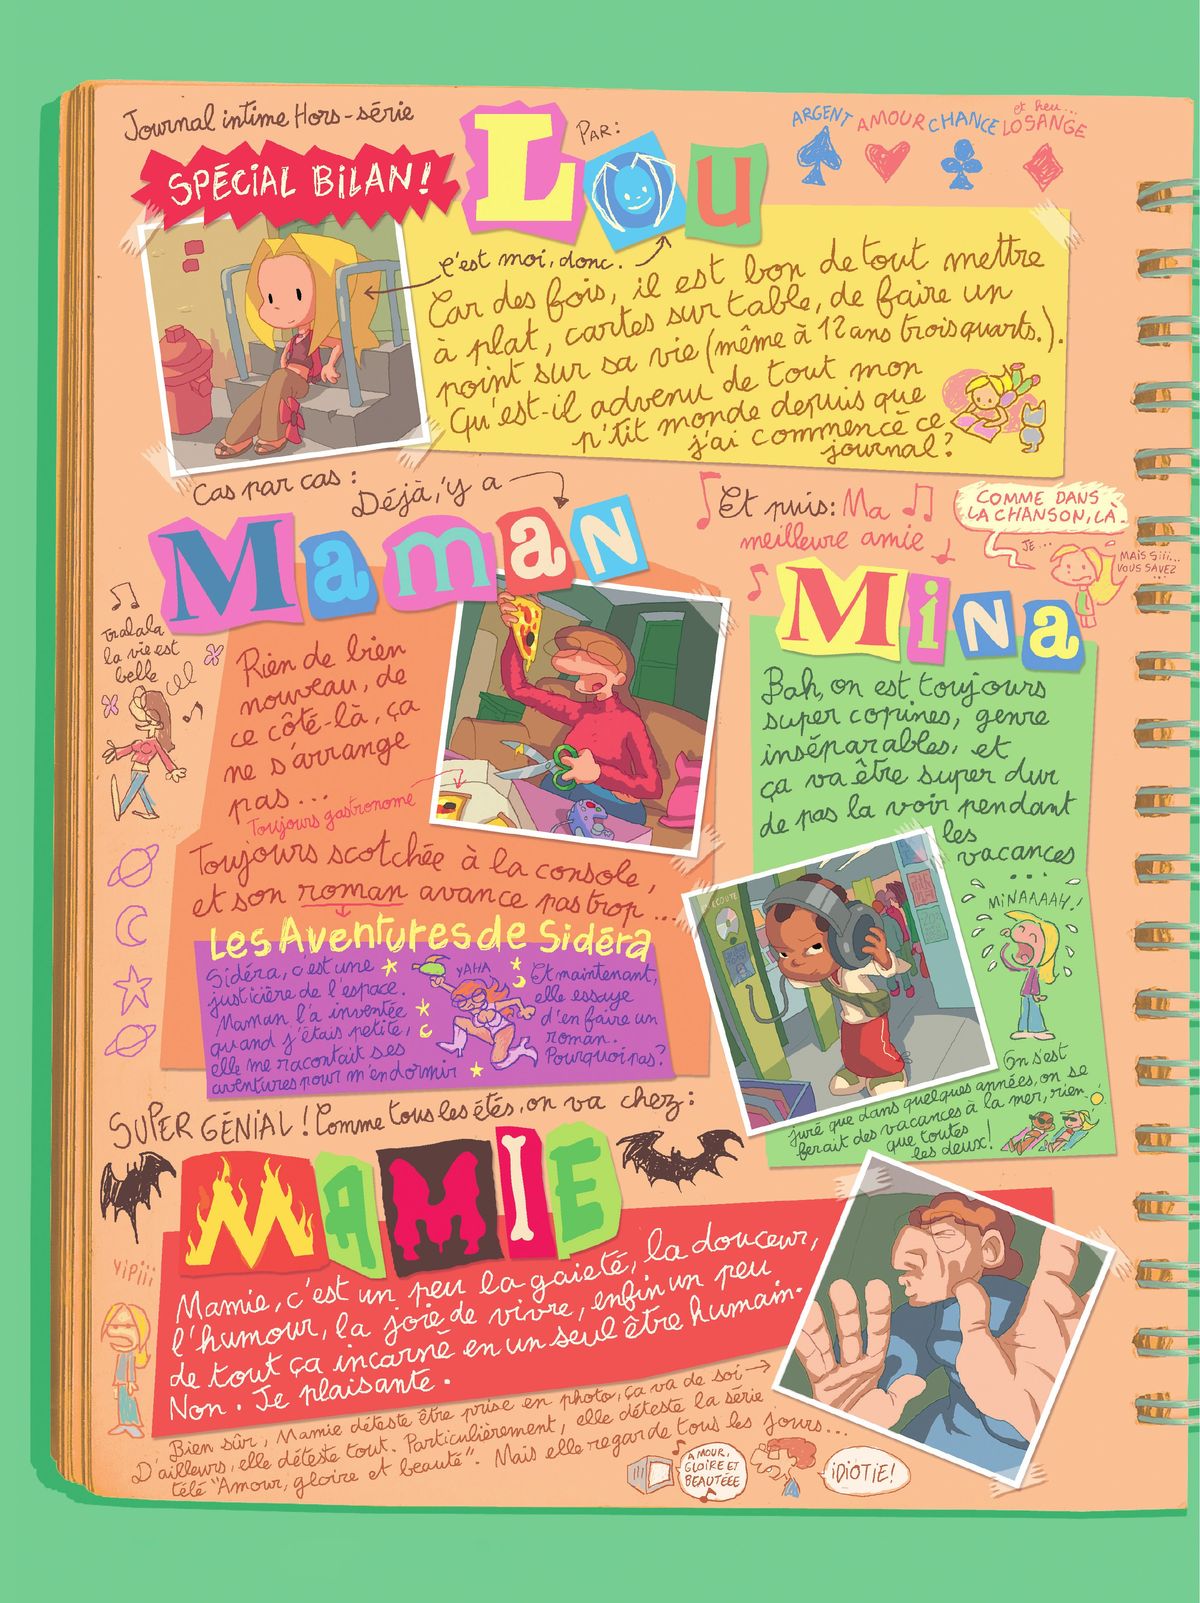 Journal intime Hors-série
SPÉCIAL BILAN!
PAR:
LOU
ARGENT
AMOUR
CHANCE
et heu...
LOSANGE
C'est moi, donc.
Car des fois, il est bon de tout mettre
à plat, cartes sur table, de faire un
point sur sa vie (même à 12 ans trois quarts.).
Qu'est-il advenu de tout mon
p'tit monde depuis que
j'ai commencé ce
journal?
Cas par cas:
Déjà, y a
Maman
tralala
la vie est
belle
Rien de bien
nouveau, de
ce côté-là, ça
ne s'arrange
pas...
Toujours gastronome
Toujours scotchée à la console,
et son roman avance pas trop...
Les Aventures de Sidéra
Sidéra, c'est une
justicière de l'espace.
Maman l'a inventée
quand j'étais petite,
elle me racontait ses
aventures pour m'endormir
YAHA
Et maintenant,
elle essaye
d'en faire un
roman.
Pourquoi pas?
Et puis: Ma
meilleure amie
COMME DANS
LA CHANSON, LÀ.
JE...
MAIS Siii...
VOUS SAVEZ
...
MiNa
Bah, on est toujours
super copines, genre
inséparables, et
ça va être super dur
de pas la voir pendant
les
vacances
...
MiNAAAAH!
ÉCOUTE
On s'est
juré que dans quelques années, on se
ferait des vacances à la mer, rien
que toutes
les deux!
SUPER GÉNIAL! Comme tous les étés, on va chez:
MAMIE
YiPiii
Mamie, c'est un peu la gaieté, la douceur,
l'humour, la joie de vivre, enfin un peu
de tout ça incarné en un seul être humain.
Non. Je plaisante.
Bien sûr, Mamie déteste être prise en photo, ça va de soi
D'ailleurs, elle déteste tout. Particulièrement, elle déteste la série
télé "Amour, gloire et beauté". Mais elle regarde tous les jours...
AMOUR,
GLOIRE ET
BEAUTÉEE
iDiOTiE!